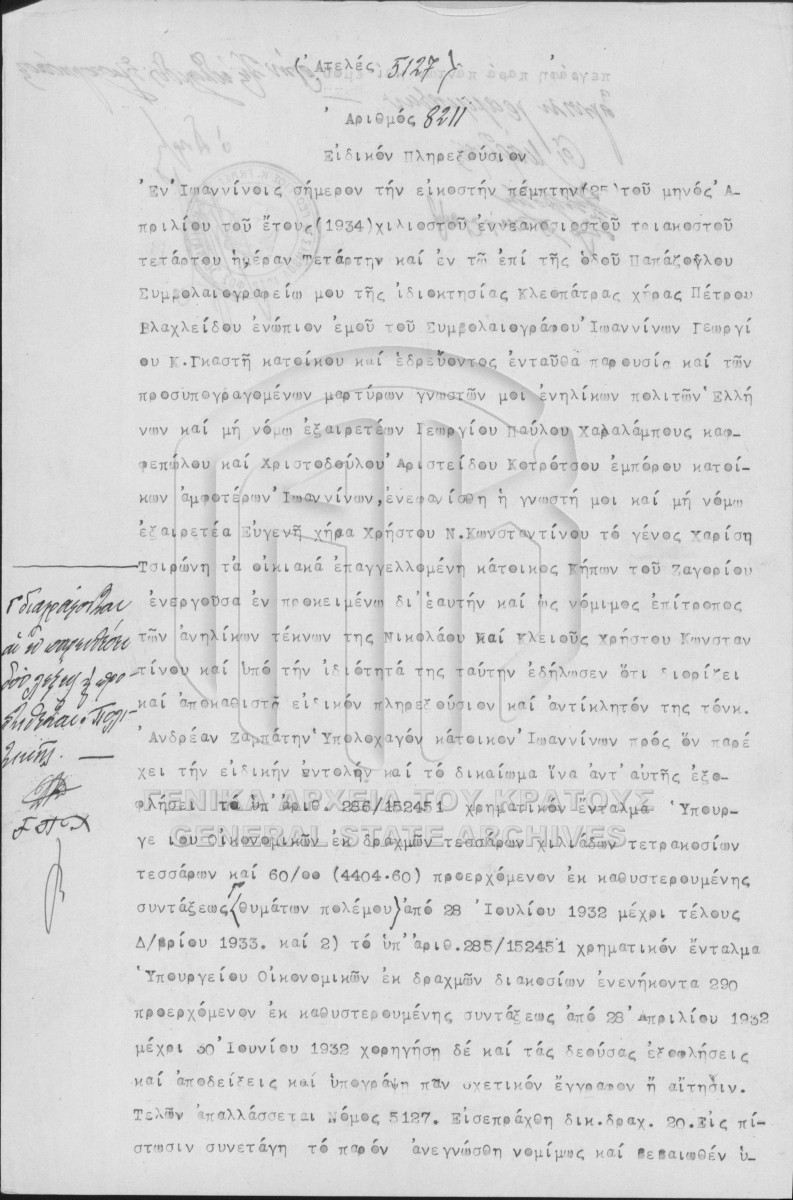 (Ἀτελές 5127)
Ἀριθμός 8211
Εἰδικόν Πληρεξούσιον
Ἐν Ἰωαννίνοις σήμερον τήν εἰκοστήν πέμπτην (25) τοῦ μηνός Ἀ-
πριλίου τοῦ ἔτους (1934) χιλιοστοῦ ἐννεακοσιοστοῦ τριακοστοῦ
τετάρτου ἡμέραν Τετάρτην καί ἐν τῶ ἐπί τῆς ὁδοῦ Παπάζογλου
Συμβολαιογραφείω μου τῆς ἰδιοκτησίας Κλεοπάτρας χήρας Πέτρου
Βλαχλείδου ἐνώπιον ἐμοῦ τοῦ Συμβολαιογράφου Ἰωαννίνων Γεωργί
ου Κ. Γκαστῆ κατοίκου καί ἑδρεύοντος ἐνταῦθα παρουσία καί τῶν
προσυπογραφομένων μαρτύρων γνωστῶν μοι ἐνηλίκων πολιτῶν Ἑλλή
νων καί μή νόμω ἐξαιρετέων Γεωργίου Παύλου Χαραλάμπους καφ-
φεπώλου καί Χριστοδούλου Ἀριστείδου Κοτρότσου ἐμπόρου κατοί-
κων ἀμφοτέρων Ἰωαννίνων, ἐνεφανίσθη ἡ γνωστή μοι καί μή νόμω
ἐξαιρετέα Εὐγενῆ χήρα Χρήστου Ν. Κωνσταντίνου τό γένος Χαρίση
Τσιρώνη τά οἰκιακά ἐπαγγελλομένη κάτοικος Κήπων τοῦ Ζαγορίου
ἐνεργοῦσα ἐν προκειμένω δι' ἑαυτήν καί ὡς νόμιμος ἐπίτροπος
τῶν ἀνηλίκων τέκνων της Νικολάου καί Κλειοῦς Χρήστου Κωνσταν
τίνου καί ὑπό τήν ἰδιότητά της ταύτην ἐδήλωσεν ὅτι διορίζει
καί ἀποκαθιστᾶ εἰδικόν πληρεξούσιον καί ἀντίκλητόν της τόνκ.
Ἀνδρέαν Ζαμπάτην Ὑπολοχαγόν κάτοικον Ἰωαννίνων πρός ὅν παρέ
χει τήν εἰδικήν ἐντολήν καί τό δικαίωμα ἵνα ἀντ' αὐτῆς ἐξο-
φλήσει τό ὑπ' ἀριθ. 286/152451 χρηματικόν ἔνταλμα Ὑπουρ-
γείου Οἰκονομικῶν ἐκ δραχμῶν τεσσάρων χιλιάδων τετρακοσίων
τεσσάρων καί 60/οο (4404.60) προερχόμενον ἐκ καθυστερουμένης
συντάξεως (θυμάτων πολέμου) ἀπό 28 Ἰουλίου 1932 μέχρι τέλους
Δ/βρίου 1933. καί 2) τό ὑπ' ἀριθ. 285/152451 χρηματικόν ἔνταλμα
Ὑπουργείου Οἰκονομικῶν ἐκ δραχμῶν διακοσίων ἐνενήκοντα 290
προερχόμενον ἐκ καθυστερουμένης συντάξεως ἀπό 28 Ἀπριλίου 1932
μέχρι 30 Ἰουνίου 1932 χορηγήση δέ καί τάς δεούσας ἐξοφλήσεις
καί ἀποδείξεις καί ὑπογράψη πᾶν σχετικόν ἔγγραφον ἤ αἴτησιν.
Τελῶν ἀπαλλάσσεται Νόμος 5127. Εἰσεπράχθη δικ. δραχ. 20. Εἰς πί-
στωσιν συνετάγη τό παρόν ἀνεγνώσθη νομίμως καί βεβαιωθέν ὑ-
Γ διαγράφονται
αἱ ἐν παρενθέσει
δύο λέξεις καί προ-
στίθεται Πολι-
τικῆς.
Γ Π Χ
ΓΕΝΙΚΑ ΑΡΧΕΙΑ ΤΟΥ ΚΡΑΤΟΥΣ
GENERAL STATE ARCHIVES